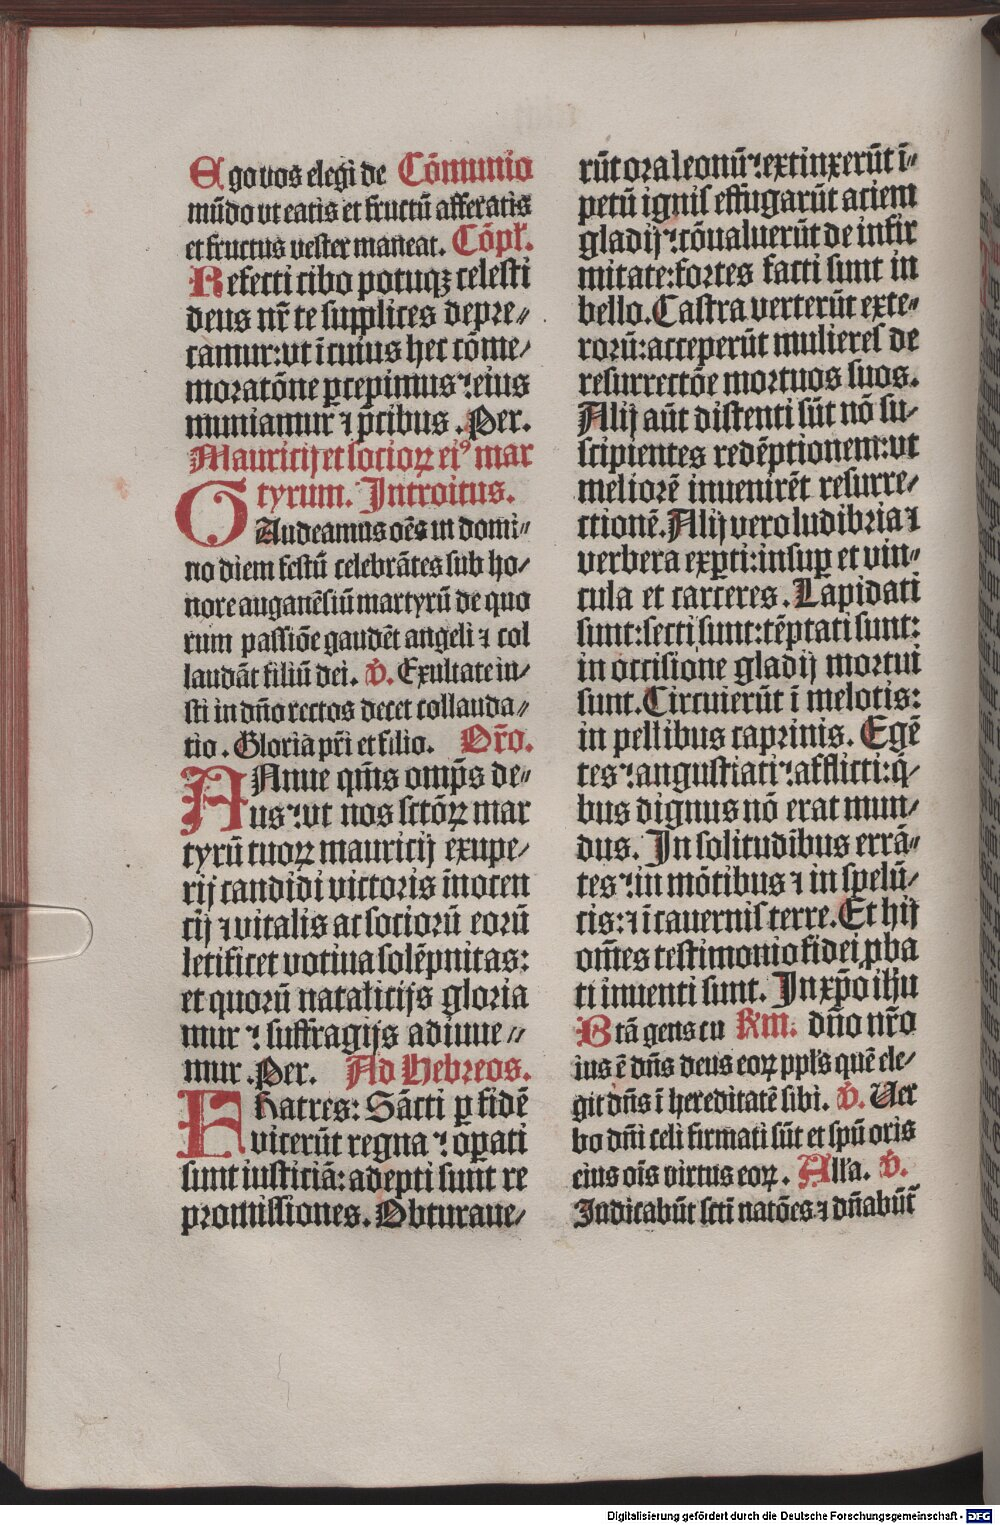 Ego vos elegi de Cōmunio
mūdo ut eatis et fructū afferatis
et fructus vester maneat. Cōpł.
Refecti cibo potuqꝫ celesti
deus nr̄ te supplices depre⸗
camur: ut ī cuius hec cōme⸗
moratōne ꝑcepimus ⁊ eius
muniamur ⁊ p̄cibus. Per.
Mauricij et socioꝝ eiꝰ mar
tyrum. Introitus.
Gaudeamus oēs in domi⸗
no diem festū celebrātes sub ho⸗
nore auganēsiū martyrū de quo
rum passiōe gaudēt angeli ⁊ col
laudāt filiū dei. v̄. Exultate iu⸗
sti in dn̄o rectos decet collauda⸗
tio. Gloria pr̄i et filio. Or̄o.
Annue qm̄s omp̄s de⸗
us ⁊ ut nos sctōꝝ mar
tyrū tuoꝝ mauricij exupe⸗
rij candidi victoris īnocen
cij ⁊ vitalis ac sociorū eorū
letificet votiva solēpnitas:
et quorū natalicijs gloria
mur ⁊ suffragijs adiuue⸗
mur. Per. Ad Hebreos.
Fratres: Sācti ꝑ fidē
vicerūt regna ⁊ oꝑati
sunt iusticiā: adepti sunt re
promissiones. Obturaue⸗
rūt ora leonū ⁊ extinxerūt ī⸗
petū ignis effugarūt aciem
gladij ⁊ cōvaluerūt de infir
mitate: fortes facti sunt in
bello. Castra verterūt exte⸗
rorū: acceperūt mulieres de
resurrectōe mortuos suos.
Alij aūt distenti sūt nō su⸗
scipientes redēptionem: ut
meliorē invenirēt resurre⸗
ctionē. Alij vero ludibria ⁊
verbera exꝑti: insuꝑ et vin⸗
cula et carceres. Lapidati
sunt: secti sunt: tēptati sunt:
in occisione gladij mortui
sunt. Circuierūt ī melotis:
in pellibus caprinis. Egē
tes ⁊ angustiati ⁊ afflicti: q̄⸗
bus dignus nō erat mun⸗
dus. In solitudibus errā⸗
tes ⁊ in mōtibus ⁊ in spelū⸗
cis: ⁊ ī cavernis terre. Et hij
om̄es testimonio fidei ꝓba
ti inventi sunt. In xp̄o ihu
Btā gens cu R̄m. dn̄o nr̄o
ius ē dn̄s deus eoꝝ ppl̄s quē ele⸗
git dn̄s ī hereditatē sibi. v̄. Ver
bo dn̄i celi firmati sūt et spū oris
eius oīs virtus eoꝝ. All'a. v̄.
Iudicabūt sctī natōes ⁊ dn̄abūt̄
Digitalisierung gefördert durch die Deutsche Forschungsgemeinschaft - DFG